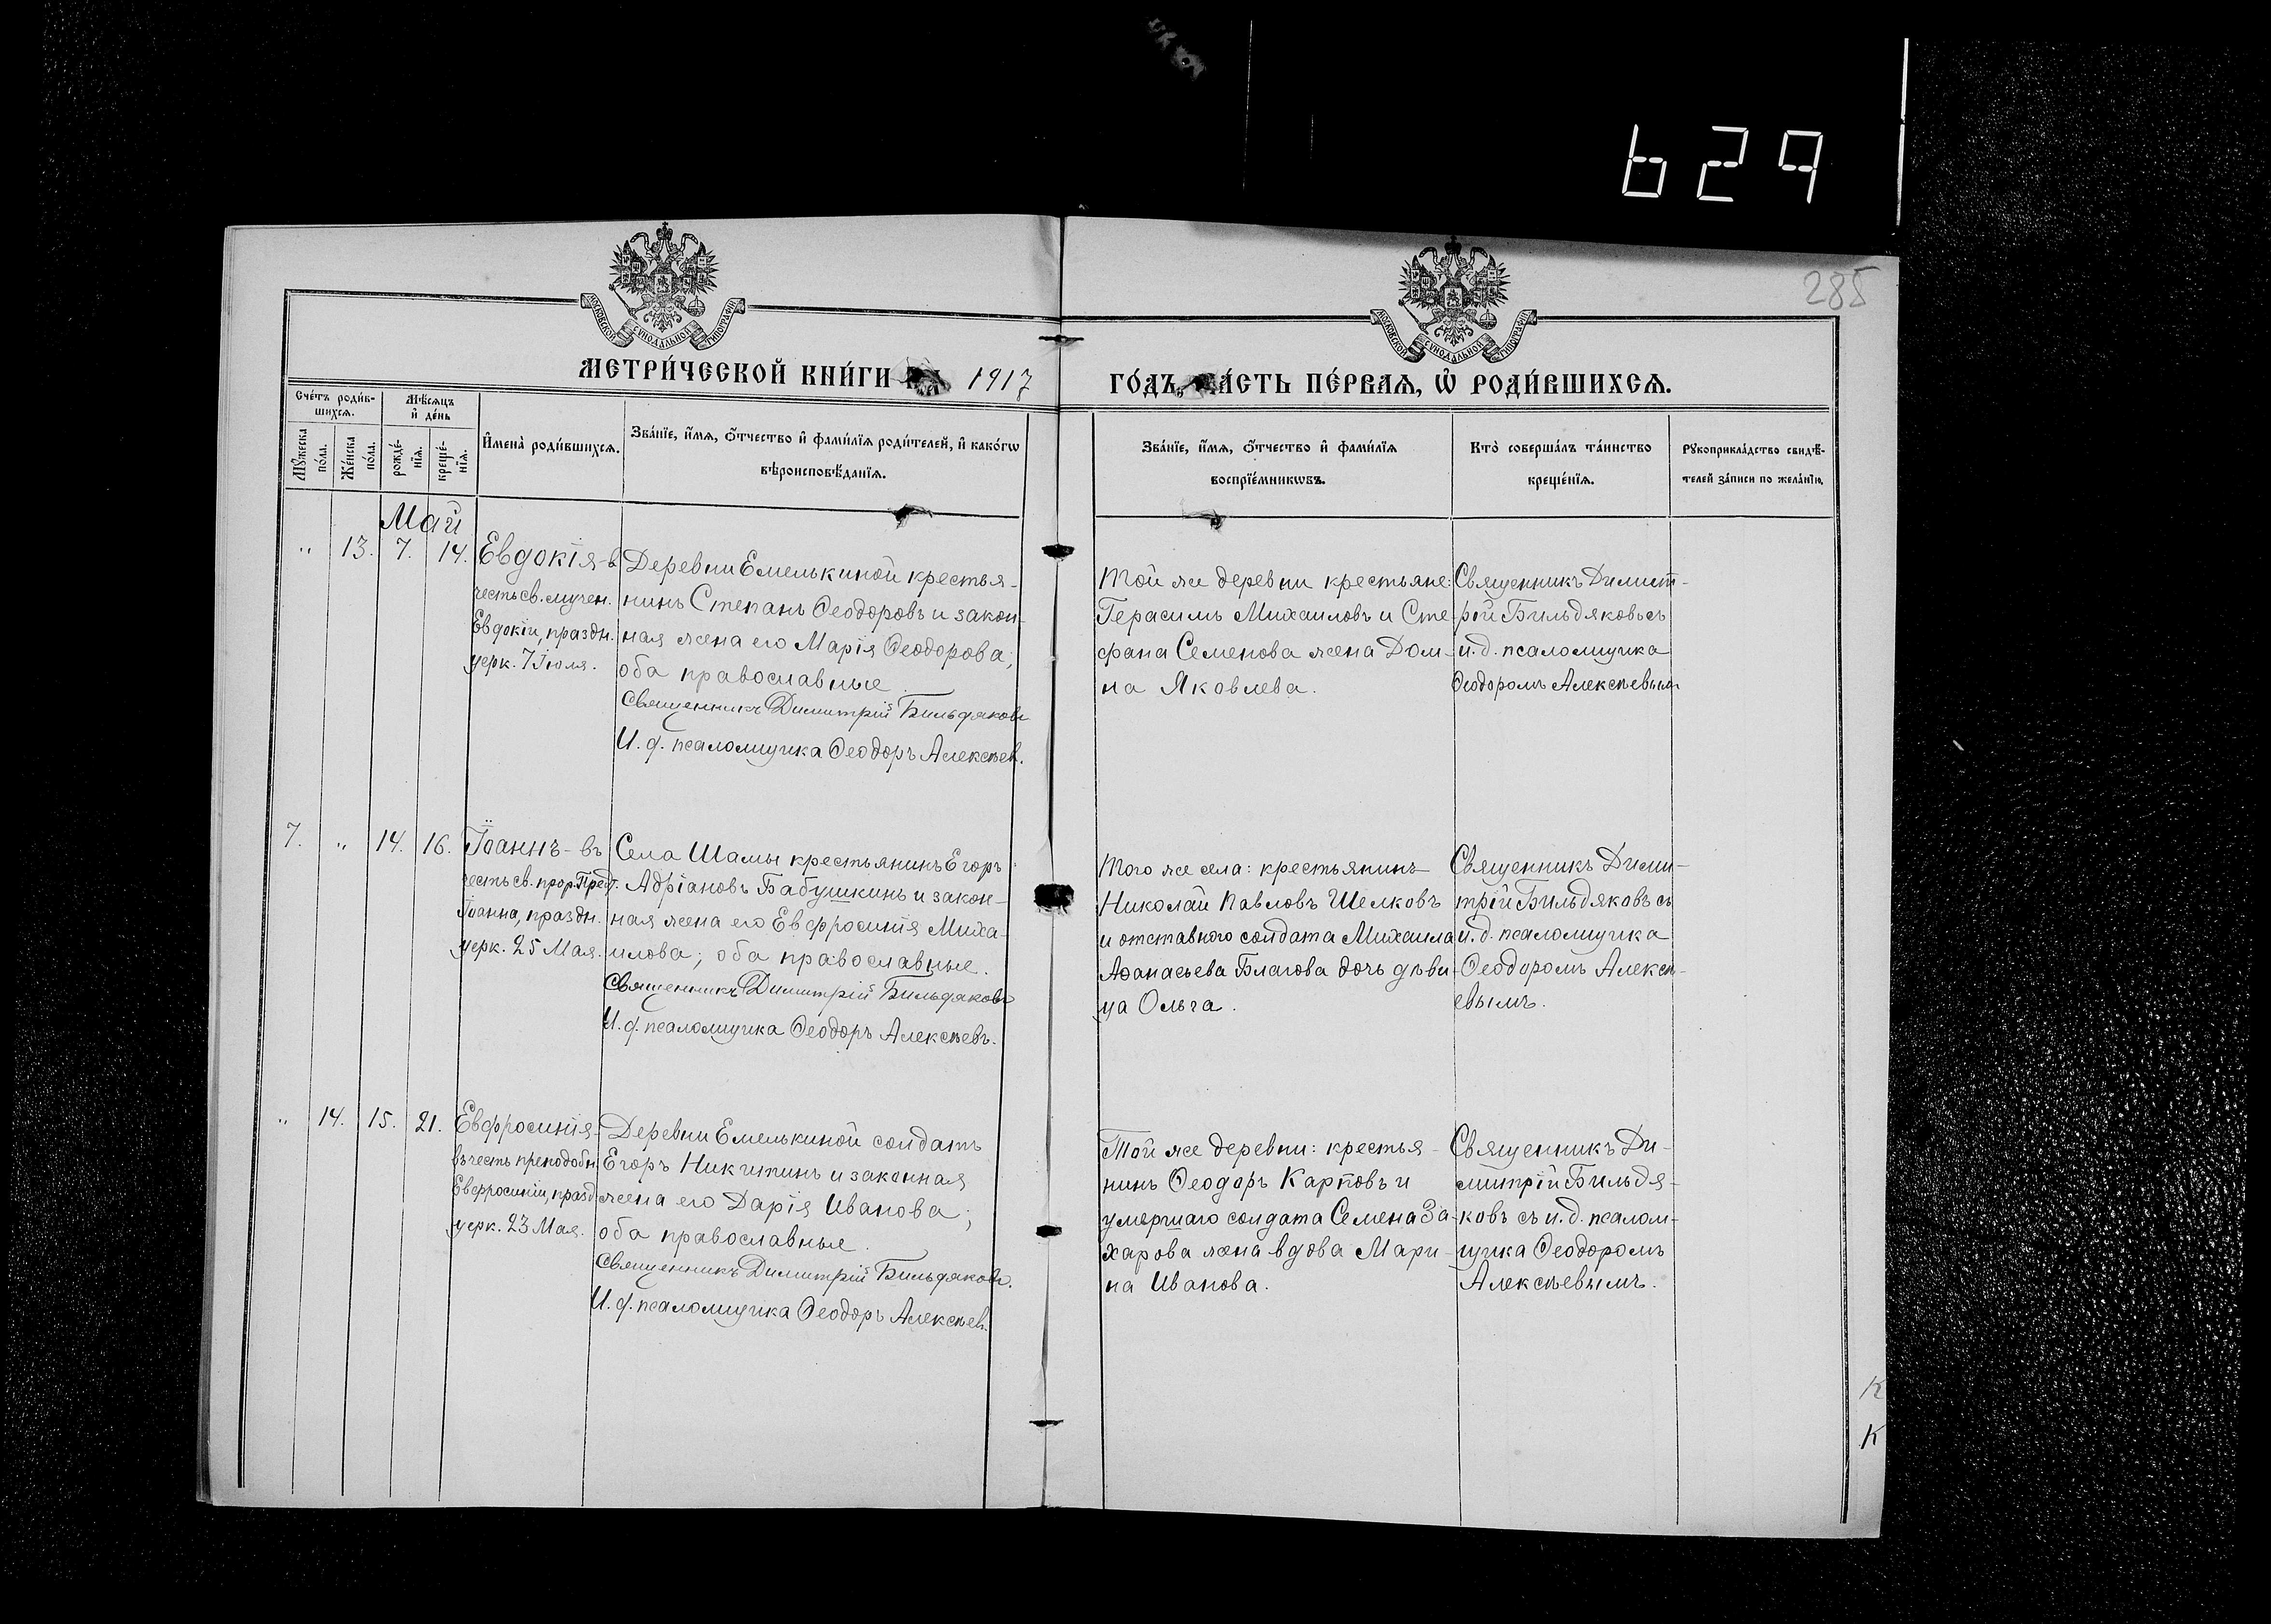 629
285
МОСКОВСКОЙ СѴНОДАЛЬНОЙ ТИПОГРАФІИ
МОСКОВСКОЙ СѴНОДАЛЬНОЙ ТИПОГРАФІИ
МЕТРИ́ЧЕСКОЙ КНИ́ГИ 1917 ГО́ДЪ, ЧА́СТЬ ПЕ́РВАѦ, Ѡ҆ РОДИ́ВШИХСѦ.
Сче́тъ роди́в-
шихсѧ.
Мѣ́сѧцъ
и҆ де́нь
Мꙋ́жеска
по́ла.
Же́нска
по́ла.
рожде́-
нїѧ.
креще́-
нїѧ.
И҆мена̀ роди́вшихсѧ.
Зва́нїе, и҆́мѧ, ѻ҆́тчество и҆ фами́лїѧ роди́телей, и҆ како́гѡ
вѣроисповѣ́данїѧ.
Зва́нїе, и҆́мѧ, ѻ҆́тчество и҆ фами́лїѧ
воспрїе́мникѡвъ.
Кто̀ соверша́лъ та́инство
креще́нїѧ.
Рꙋкоприкла́дство свидѣ́-
телей за́писи по жела́нїю.
Май
" 13. 7. 14.
Евдокія-в
честь св. мучен.
Евдокіи, праздн.
церк. 7 Іюля.
Деревни Емелькиной крестья-
нинъ Степанъ Ѳеодоровъ и закон-
ная жена его Марія Ѳеодорова;
оба православные.
Священникъ Димитрій Бильдяковъ
И. д. псаломщика Ѳеодоръ Алексѣев.
Той же деревни крестьяне:
Герасимъ Михаиловъ и Сте-
фана Семенова жена Дом-
на Яковлева.
Священникъ Димит-
рій Бильдяковъ съ
и. д. псаломщика
Ѳеодоромъ Алексѣевымъ
7. " 14. 16.
Іоаннъ - въ
честь св. прор. Предт.
Іоанна, праздн.
церк. 25 Мая.
Села Шамы крестьянинъ Егоръ
Адріановъ Бабушкинъ и закон-
ная жена его Евфросинія Миха-
илова; оба православные.
Священникъ Димитрій Бильдяковъ
И. д. псаломщика Ѳеодоръ Алексѣевъ.
Того же села: крестьянинъ
Николай Павловъ Шелковъ
и отставного солдата Михаила
Аѳанасьева Благова дочь дѣви-
ца Ольга.
Священникъ Дими-
трій Бильдяковъ съ
и. д. псаломщика
Ѳеодоромъ Алексѣ-
евымъ.
" 14. 15. 21.
Евфросинія-
въ честь преподобн.
Евфросиніи, празд.
церк. 23 Мая.
Деревни Емелькиной солдатъ
Егоръ Никитинъ и законная
жена его Дарія Иванова;
оба православные.
Священникъ Димитрій Бильдяковъ.
И. д. псаломщика Ѳеодоръ Алексѣев.
Той же деревни: крестья-
нинъ Ѳеодоръ Карповъ и
умершаго солдата Семена За-
харова жена вдова Мари-
на Иванова.
Священникъ Ди-
митрій Бильдя-
ковъ съ и. д. псалом-
щика Ѳеодоромъ
Алексѣевымъ.
К
К